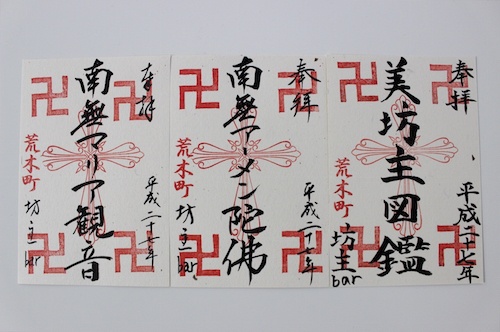 奉拝 平成二十七年
美坊主図鑑
荒木町 坊主bar
奉拝 平成二十七年
南無アーメン陀佛
荒木町 坊主bar
奉拝 平成二十七年
南無マリア観音
荒木町 坊主bar